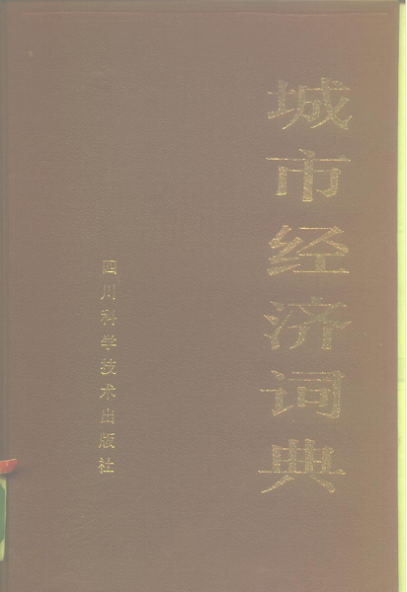 城市经济词典
四川科学技术出版社